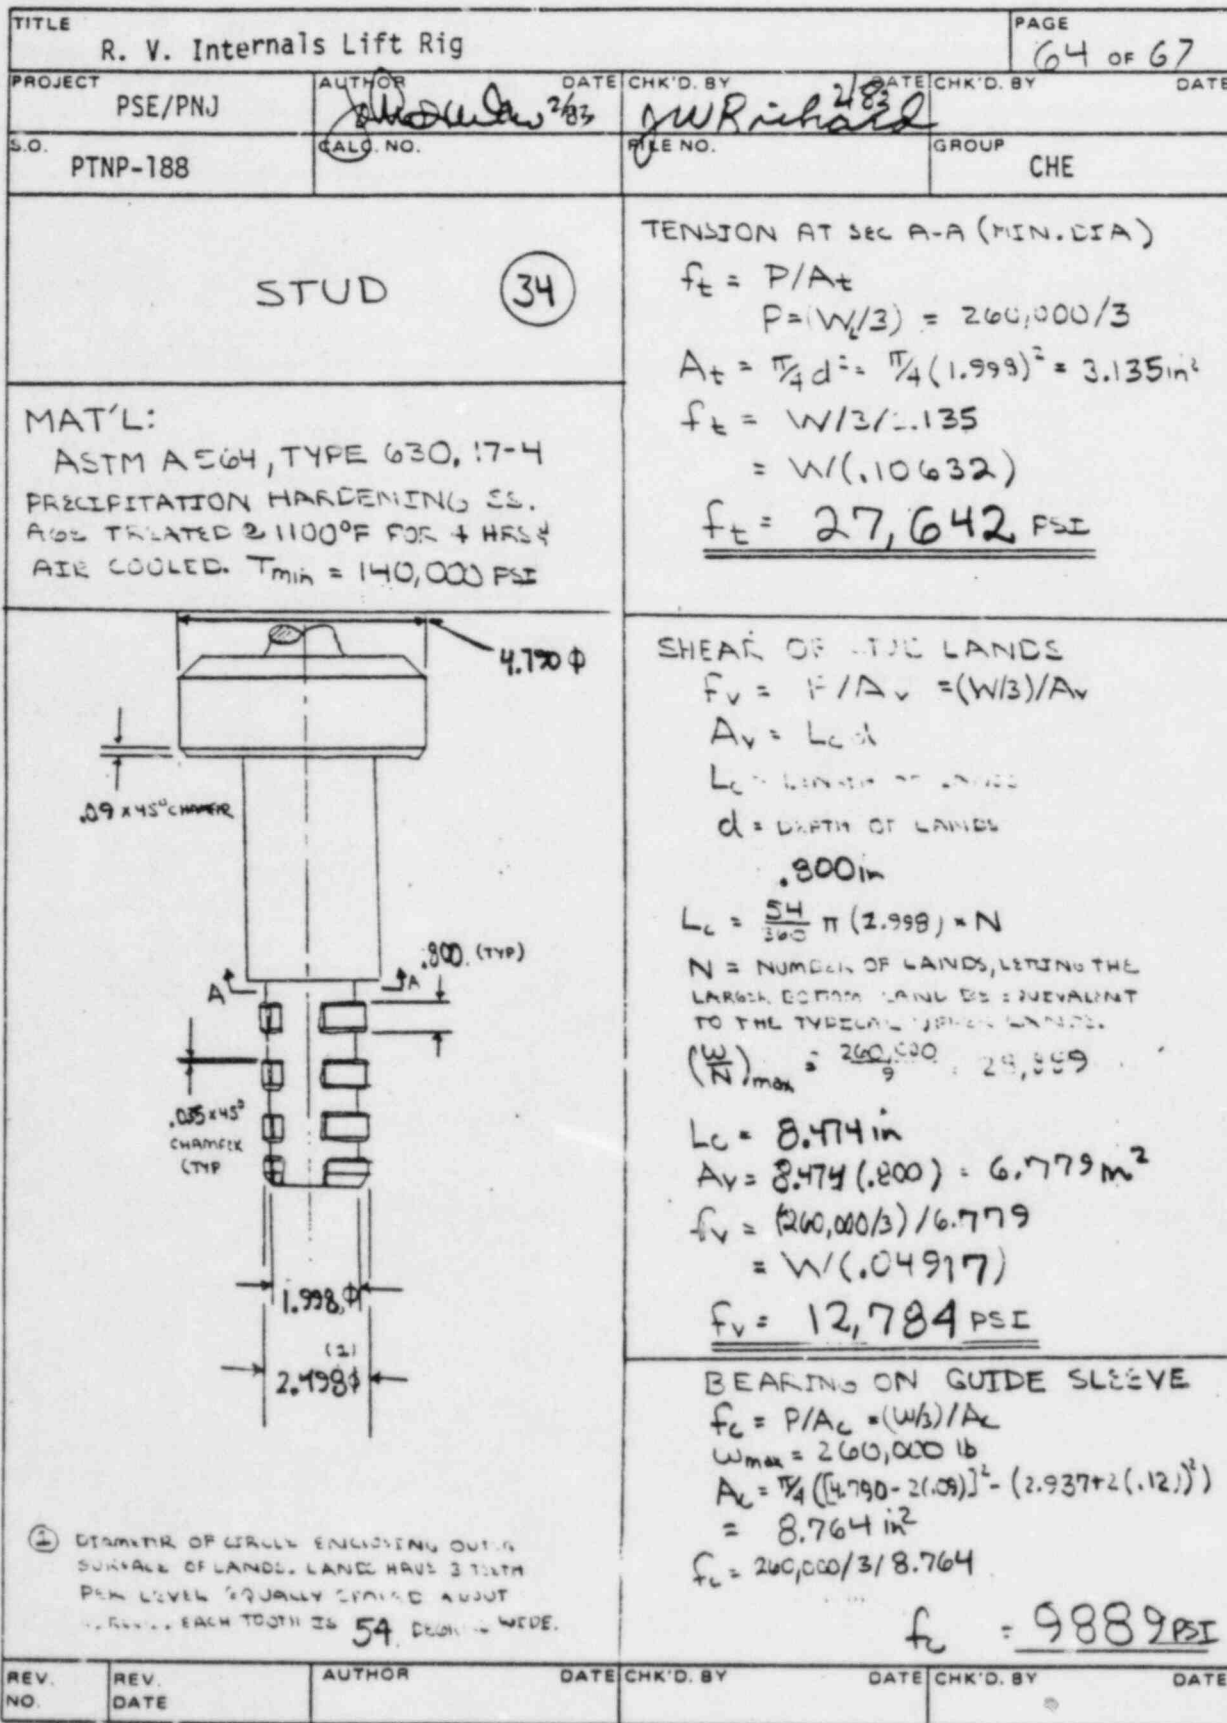 TITLE
R. V. Internals Lift Rig
PAGE
64 OF 67
PROJECT
PSE/PNJ
AUTHOR
DATE
2/83
CHK'D. BY
DATE
JW Richard 2/83
CHK'D. BY
DATE
S.O.
PTNP-188
CALC. NO.
FILE NO.
GROUP
CHE
STUD 34
MAT'L:
ASTM A564, TYPE 630, 17-4
PRECIPITATION HARDENING SS.
AGE TREATED @ 1100°F FOR 4 HRS &
AIR COOLED. Tmin = 140,000 PSI
4.790 ϕ
.09 x 45° CHAMFER
.800 (TYP)
A A
.035 x 45°
CHAMFER
(TYP
1.998 ϕ
(1)
2.498 ϕ
① DIAMETER OF CIRCLE ENCLOSING OUTER
SURFACE OF LANDS. LANDS HAVE 3 TEETH
PER LEVEL EQUALLY SPACED ABOUT
EACH TOOTH IS 54 WIDE.
TENSION AT SEC A-A (MIN. DIA)
ft = P/At
P=(W/3) = 260,000/3
At = π/4 d² = π/4 (1.998)² = 3.135 in²
ft = W/3/3.135
= W(.10632)
ft = 27,642 PSI
SHEAR OF LANDS
fv = P/Av = (W/3)/Av
Av = Lc d
Lc = LENGTH OF LANDS
d = DEPTH OF LANDS
.800 in
Lc = 54/360 π (1.998) × N
N = NUMBER OF LANDS, LETTING THE
LARGER BOTTOM LAND BE EQUIVALENT
TO THE TYPICAL UPPER LANDS.
(W/N)max = 260,000/9 = 28,889
Lc = 8.474 in
Av = 8.474 (.800) = 6.779 in²
fv = (260,000/3)/6.779
= W(.04917)
fv = 12,784 PSI
BEARING ON GUIDE SLEEVE
fc = P/Ac = (W/3)/Ac
Wmax = 260,000 lb
Ac = π/4 ([4.790-2(.09)]² - (2.937+2(.12))²)
= 8.764 in²
fc = 260,000/3/8.764
fc = 9889 PSI
REV. NO.
REV. DATE
AUTHOR
DATE
CHK'D. BY
DATE
CHK'D. BY
DATE